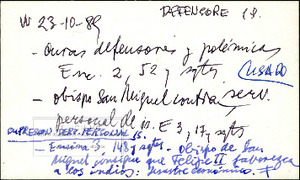 W 23-10-89 DEFENSORE IS.
- Curas defensores y polémicas
Enc. 2, 52 y sgtes USADO
- obispo San Miguel contra serv.
personal de is. E 3, 17 y sgts
SUPRESION SERV. PERSONAL IS.
- Encina 3, 143 y sgtes. obispo de San
Miguel consigue que Felipe II favorezca
a los indios: